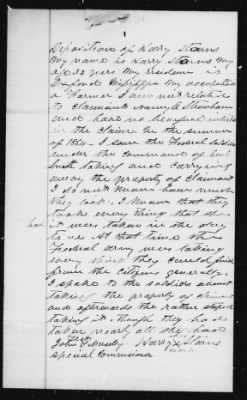 1
Deposition of Harry Stearns
My name is Harry Stearns My
age 52 years My residence is
Oxford Mississippi My occupation
a Farmer I am not related
to Claimant Nancy
and have no beneficial interest
in the claim. In the summer
of 1864 - I saw the Federal soldiers
under the command of Gen
Smith taking and carrying
away the property of Claimant
I do not know how much
they took. I know that they
took everything that she
it was taken in the day
time - At that time the
Federal army was taking
every thing they could find
from the citizens generally.
I spoke to the soldiers about
taking the property of claimant
and afterwards the rather stopped
taking it - though they had
taken nearly all she had
Harry X Stearns
Special Commissioner